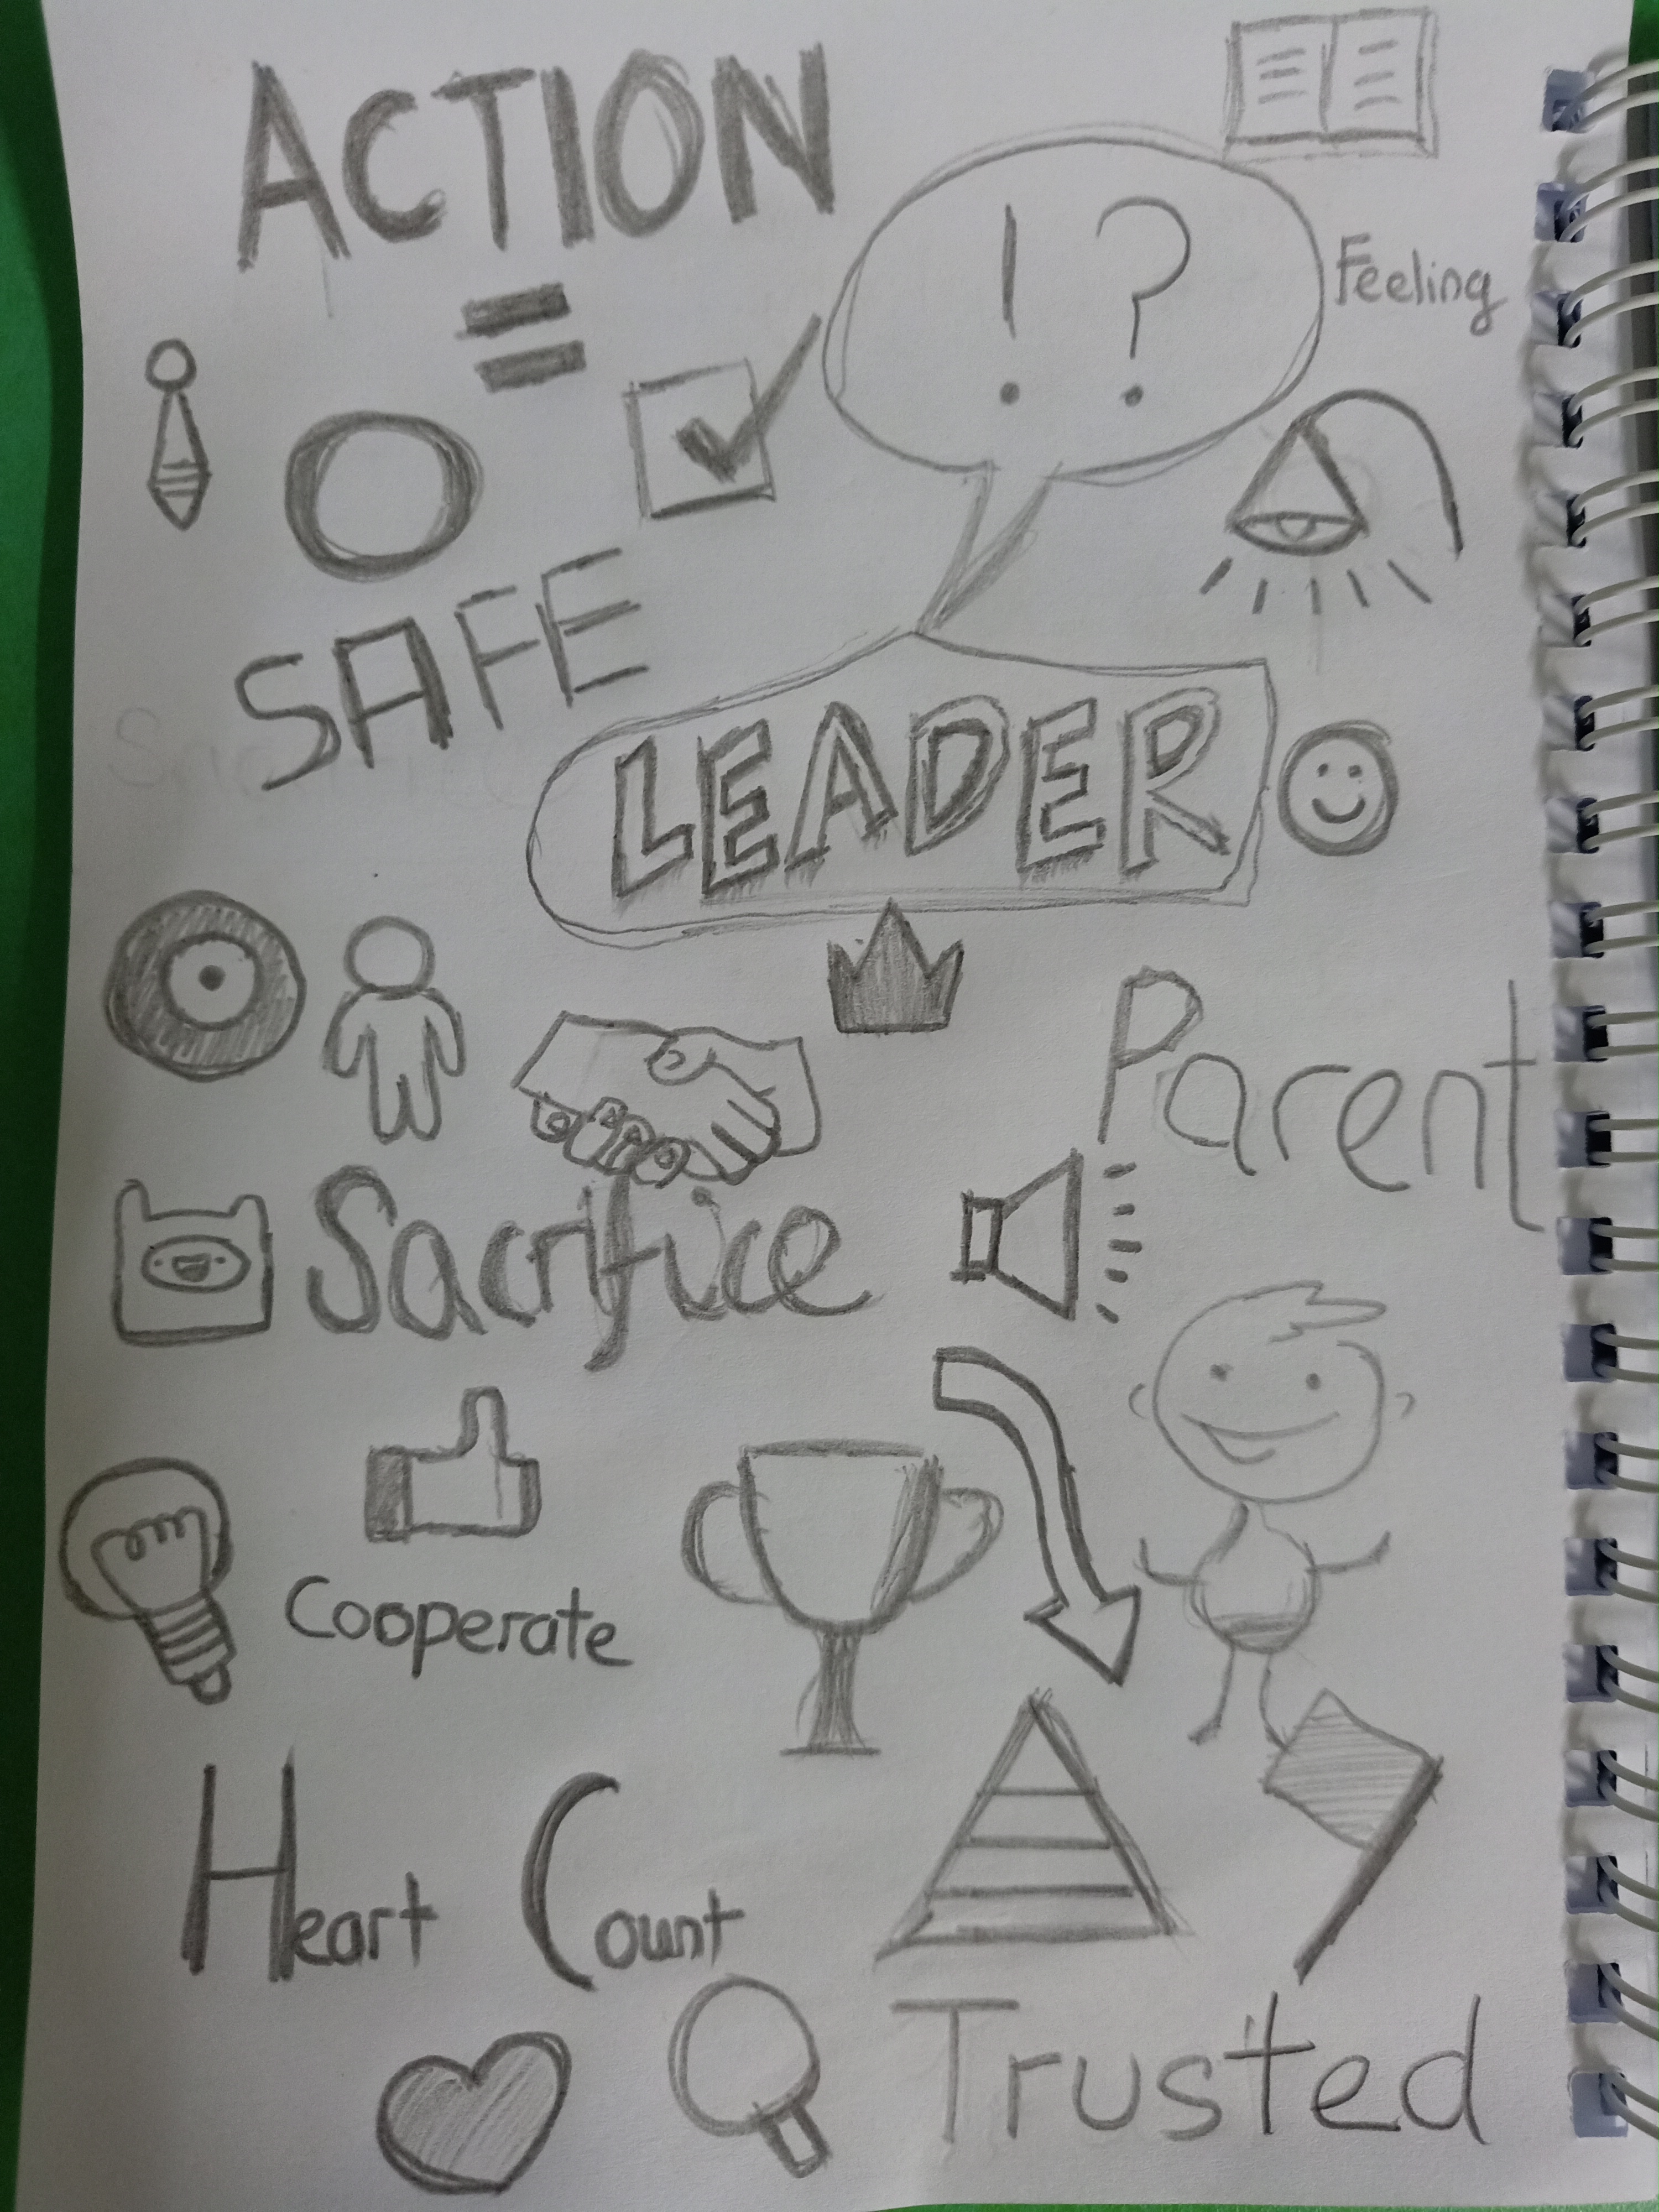 ACTION
=
! ?
Feeling
SAFE
LEADER
Parent
Sacrifice
Cooperate
Heart Count
Trusted